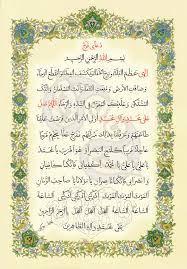 دعای فرج
بسم الله الرحمن الرحیم
الهی عظم البلاء و برح الخفاء و انکشف الغطاء و انقطع الرجاء
و ضاقت الارض و منعت السماء و انت المستعان و الیک
المشتکی و علیک المعول فی الشدة و الرخاء اللهم صل
علی محمد و آل محمد اولی الامر الذین فرضت علینا
طاعتهم و عرفتنا بذلک منزلتهم ففرج عنا بحقهم فرجا
عاجلا قریبا کلمح البصر او هو اقرب یا محمد
یا علی یا علی یا محمد اکفیانی فانکما کافیان
و انصرانی فانکما ناصران یا مولانا یا صاحب الزمان
الغوث الغوث الغوث ادرکنی ادرکنی ادرکنی
الساعة الساعة الساعة العجل العجل العجل یا ارحم الراحمین
بحق محمد و آله الطاهرین